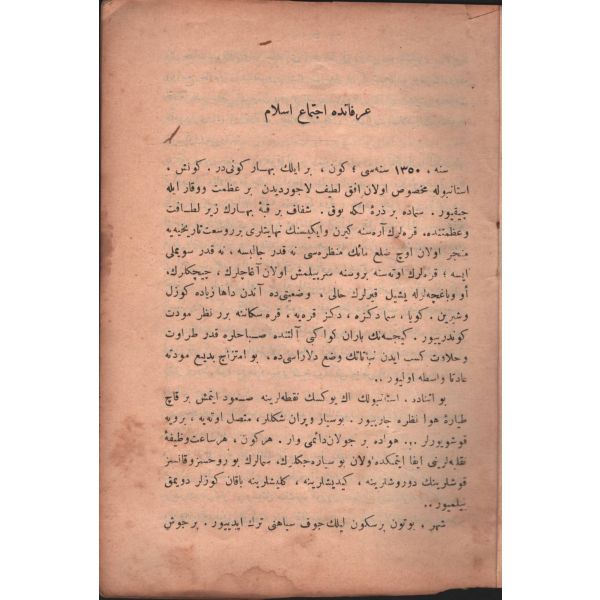 عرفاتده اجتماع اسلام
سنه ، ۱۳۵۰ سنه‌سی ؛ كون ، بر ایلك بهار كونی‌در . كونش .
استانبوله مخصوص اولان افق لطیف لاجوردیدن بر عظمت ووقار ایله
چیقیور . سماده بر ذرهٔ لكه یوق . شفاف بر قبهٔ بهارك زیر لطافت
وعظمتنده ، قره‌لرك آره‌سنه كیرن وایكیسنك نهایتلری بر وسعت تاریخیه‌یه
منجر اولان اوچ ضلع مائك منظره‌سی نه قدر جالبسه ، نه قدر سویملی
ایسه ؛ قره‌لرك اوته‌سنه بروسنه سرپیلمش اولان آغاچلرك ، چیچكلرك،
أو وباغچه‌لرله یشیل قیرلرك حالی ، وضعیتی‌ده آندن داها زیاده كوزل
وشیرین . كویا ، سما دكزه ، دكز قره‌یه ، قره سكاننه بر نظر مودت
كوندریور . كیجه‌نك باران كواكبی آلتنده صباحلره قدر طراوت
وحلاوت كسب ایدن نباتاتك وضع دلاراسی‌ده ، بو امتزاج بدیع مودته
عادتا واسطه اولیور ..
بو اثناده ، استانبولك اك یوكسك نقطه‌لرینه صعود ایتمش بر قاچ
طیارهٔ هوا نظره چارپیور . بوسیار ویران شكللر ، متصل اوته‌یه ، برویه
قوشویورلر ... هواده بر جولان دائمی وار . هركون ، هرساعت وظیفهٔ
نقلیه‌لرینی ایفا ایتمكده‌اولان بو سیاره‌جكلرك، سمالرك بو روحسز وقانسز
قوشلرینك دوروشلرینه ، كیدیشلرینه ، كلیشلرینه باقان كوزلر دویمق
بیلمیور ..
شهر ، بوتون بر سكون لیلك جوف سیاهنی ترك ایدیور . بر جوش